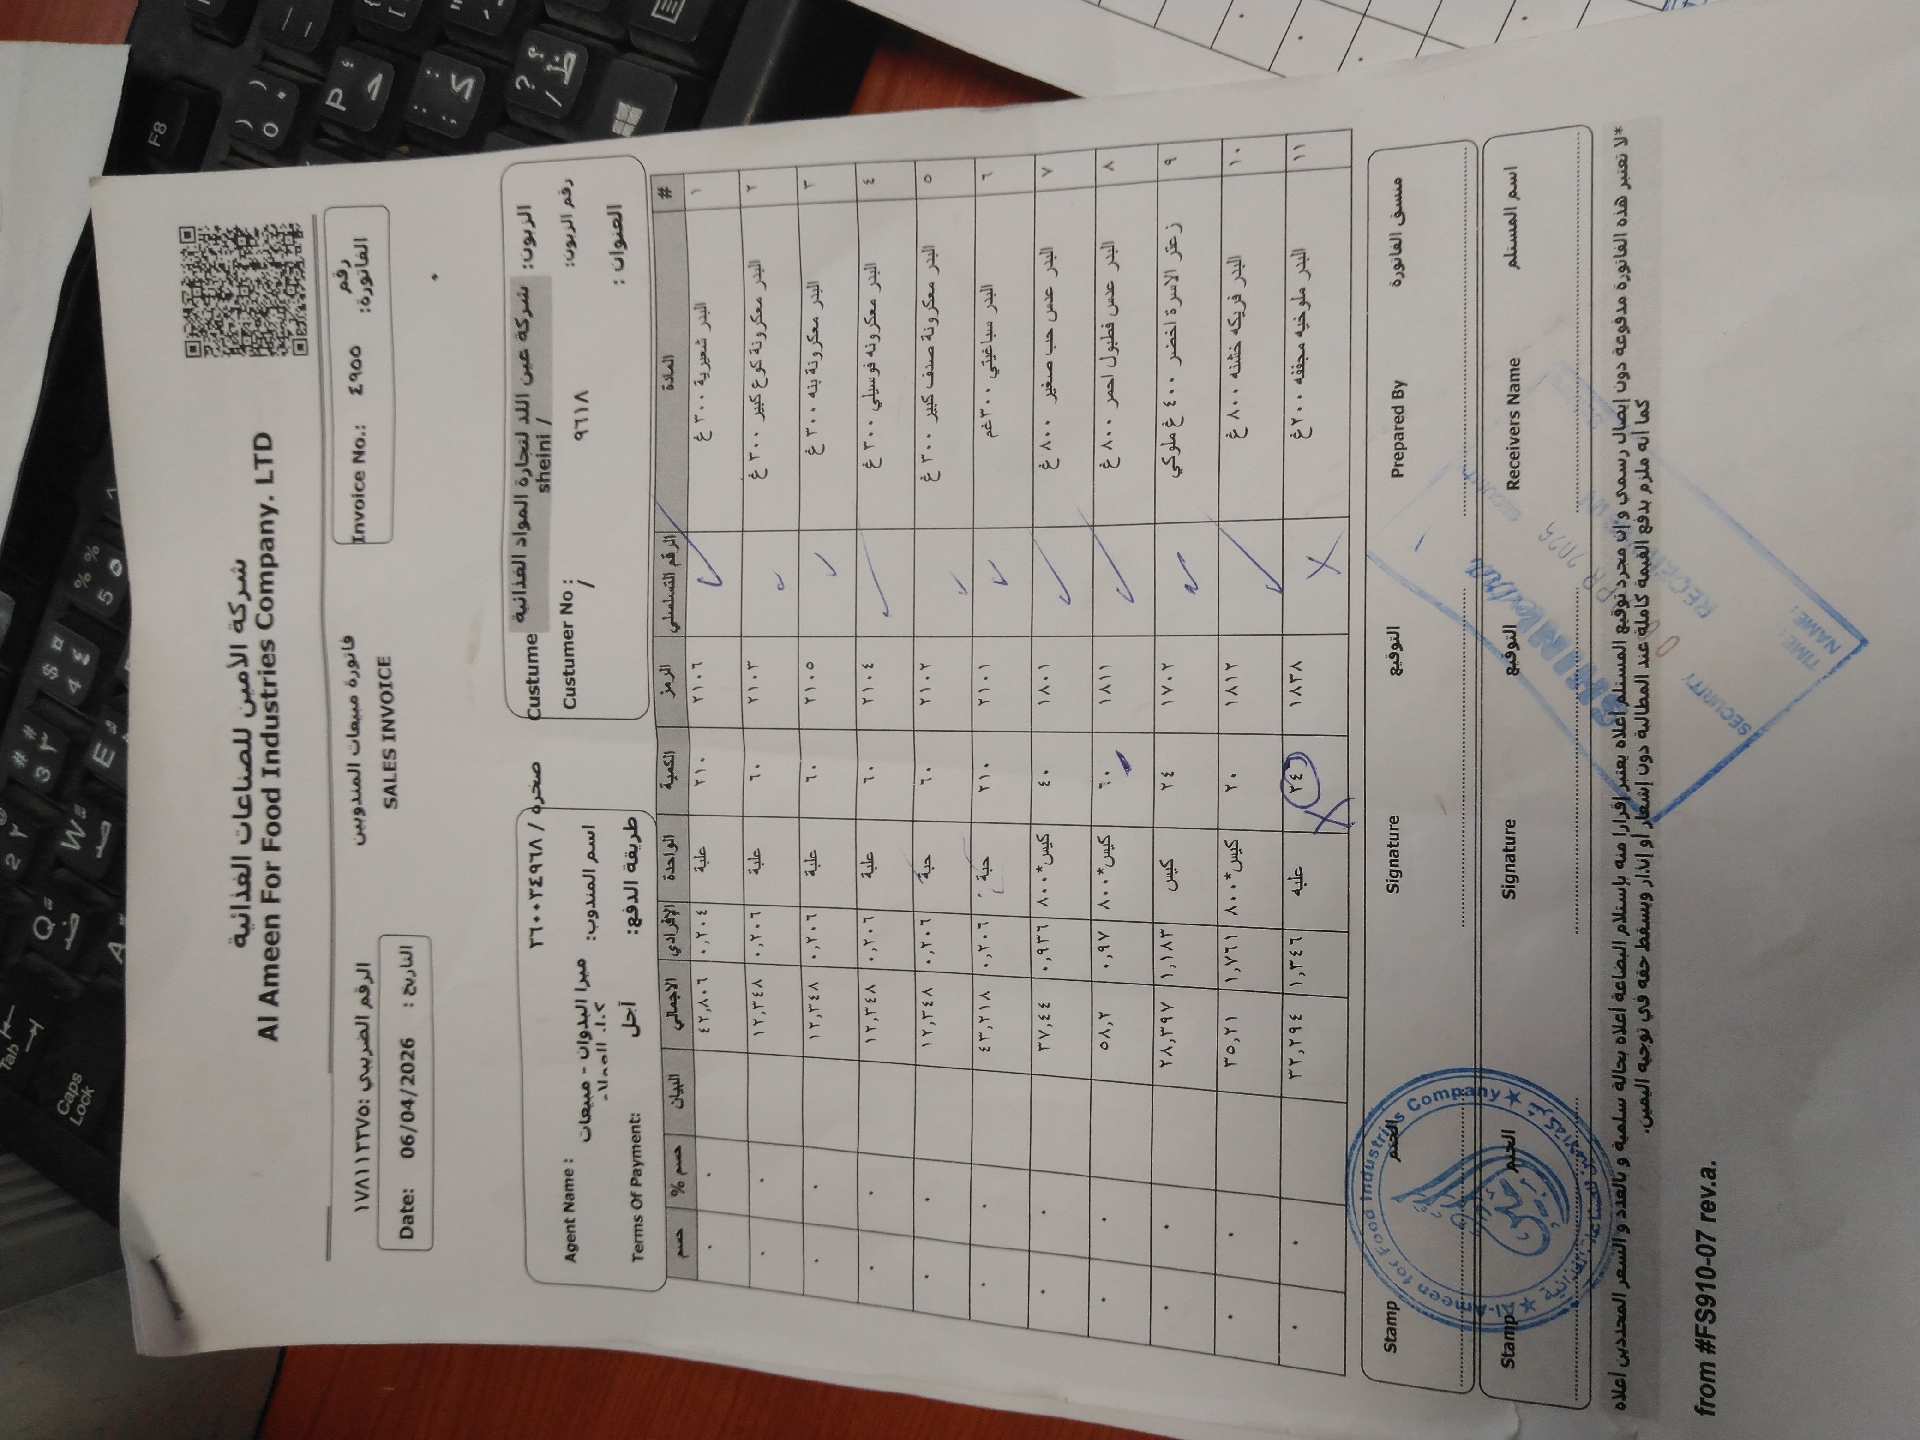 شركة الأمين للصناعات الغذائية
Al Ameen For Food Industries Company. LTD
فاتورة مبيعات المندوبين
SALES INVOICE
Invoice No.: ٤٩٥٥ رقم الفاتورة:
الرقم الضريبي: ١٧٨١١٣٢٧٥
Date: 06/04/2026 التاريخ :
الزبون: شركة عين اللد لتجارة المواد الغذائية Custume
sheini /
رقم الزبون: ٩٦١٨ Custumer No :
/
العنوان :
صخره / ٣٦٠٠٣٤٩٦٨
Agent Name : ميرا البدوان - مبيعات اسم المندوب:
Terms Of Payment: آجل طريقة الدفع:
# المادة الرقم التسلسلي الرمز الكمية الواحدة الإفرادي الاجمالي البيان حسم % حسم
١ البدر شعيرية ٣٠٠ غ ٢١٠٦ ٢١٠ علبة ٠,٢٠٤ ٤٢,٨٠٦ ٠ ٠
٢ البدر معكرونة كوع كبير ٣٠٠ غ ٢١٠٣ ٦٠ علبة ٠,٢٠٦ ١٢,٣٤٨ ٠ ٠
٣ البدر معكرونة بنه ٣٠٠ غ ٢١٠٥ ٦٠ علبة ٠,٢٠٦ ١٢,٣٤٨ ٠ ٠
٤ البدر معكرونه فوسيلي ٣٠٠ غ ٢١٠٤ ٦٠ علبة ٠,٢٠٦ ١٢,٣٤٨ ٠ ٠
٥ البدر معكرونة صدف كبير ٣٠٠ غ ٢١٠٢ ٦٠ حبة ٠,٢٠٦ ١٢,٣٤٨ ٠ ٠
٦ البدر سباغيتي ٣٠٠غم ٢١٠١ ٢١٠ حبة ٠,٢٠٦ ٤٣,٢١٨ ٠ ٠
٧ البدر عدس حب صغير ٨٠٠ غ ١٨٠١ ٤٠ كيس*٨٠٠ ٠,٩٣٦ ٣٧,٤٤ ٠ ٠
٨ البدر عدس قطبول احمر ٨٠٠ غ ١٨١١ ٦٠ كيس*٨٠٠ ٠,٩٧ ٥٨,٢ ٠ ٠
٩ زعتر الاسرة اخضر ٤٠٠ غ ملوكي ١٧٠٢ ٢٤ كيس ١,١٨٣ ٢٨,٣٩٧ ٠ ٠
١٠ البدر فريكه خشنه ٨٠٠ غ ١٨١٢ ٢٠ كيس*٨٠٠ ١,٧٦١ ٣٥,٢١ ٠ ٠
١١ البدر ملوخيه مجففه ٢٠٠غ ١٨٣٨ ٢٤ علبه ١,٣٤٦ ٣٢,٢٩٤ ٠ ٠
منسق الفاتورة Prepared By التوقيع Signature الختم Stamp
اسم المستلم Receivers Name التوقيع Signature الختم Stamp
*لا تعتبر هذه الفاتورة مدفوعة دون إيصال رسمي و إن مجرد توقيع المستلم أعلاه يعتبر إقرارا منه بإستلام البضاعة أعلاه بحالة سليمة و بالعدد و السعر المحددين أعلاه
كما أنه ملزم بدفع القيمة كاملة عند المطالبة دون إشعار أو إنذار ويسقط حقه في توجيه اليمين.
from #FS910-07 rev.a.
Al-Ameen for Food Industries Company
SECURITY
TIME:
NAME:
F8
Caps Lock
Tab